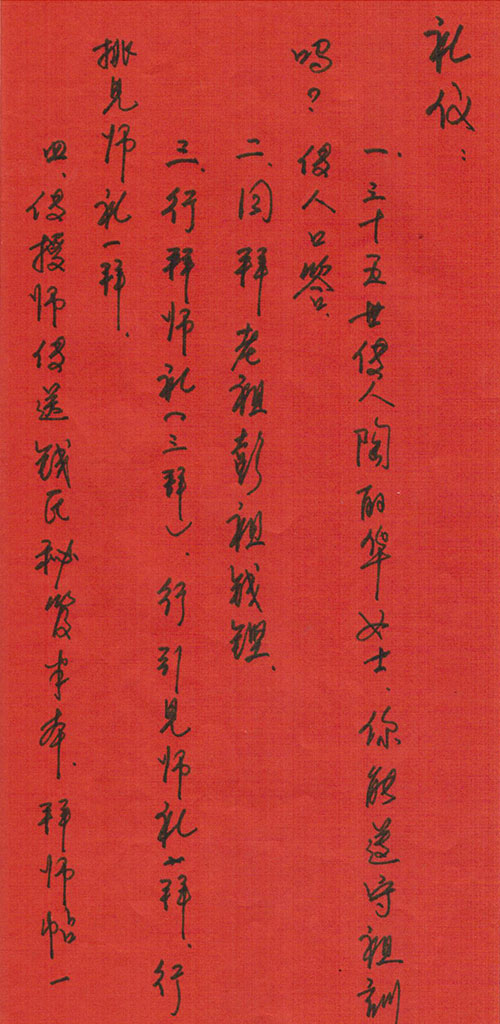 礼仪：
一、三十五世传人陶丽华女士、你能遵守祖训
吗？传人口答、
二、同拜老祖彭祖钱铿、
三、行拜师礼（三拜）、行引见师礼一拜、行
挑见师礼一拜、
四、传授师传送钱氏秘笈半本、拜师帖一